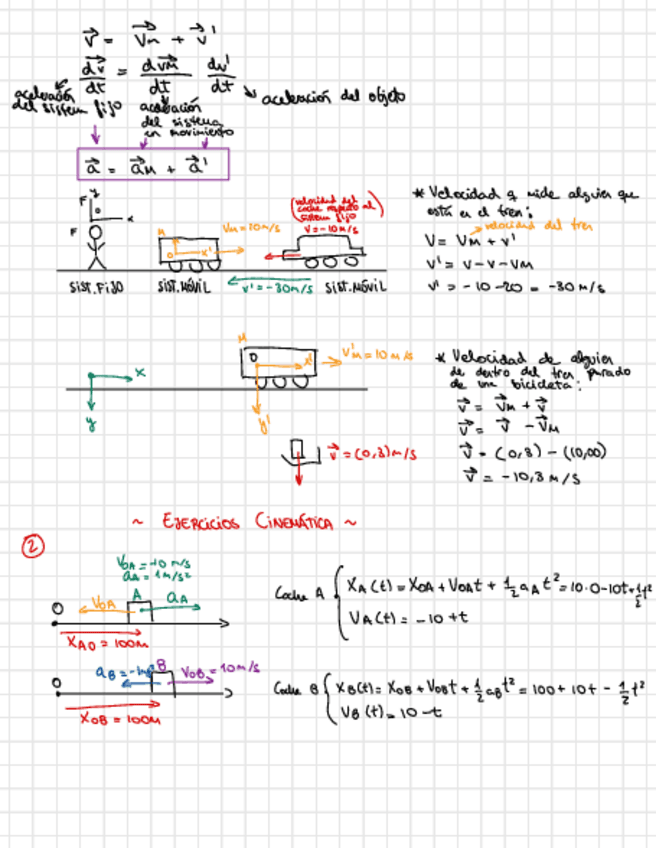 v⃗ = v⃗M + v⃗'
dv⃗/dt = dv⃗M/dt dv'/dt
aceleración del objeto
aceleración
del sistema fijo
aceleración
del sistema
en movimiento
a⃗ = a⃗M + a⃗'
F
y
x
F
SIST. FIJO
M
O
x'
VM = 10 m/s
SIST. MÓVIL
(velocidad del
coche respecto al
sistema fijo)
V = -10 m/s
v' = -30 m/s
SIST. MÓVIL
* Velocidad q mide alguien que
está en el tren:
velocidad del tren
V = VM + v'
v' = v - v - VM
v' = -10 - 20 = -30 m/s
x
y
M
O
x'
y'
v⃗'M = 10 m/s
v⃗ = (0,3) m/s
* Velocidad de alguien
de dentro del tren parado
de una bicicleta:
v⃗ = v⃗M + v⃗
v⃗ = v⃗ - v⃗M
v⃗ = (0,3) - (10,00)
v⃗ = -10,3 m/s
~ EJERCICIOS CINEMÁTICA ~
2
V0A = -10 m/s
aA = 1 m/s²
O
V0A
A
aA
XA0 = 100m
Coche A
XA(t) = X0A + V0At + 1/2 aA t² = 10·0 - 10t + 1/2 t²
VA(t) = -10 + t
O
B
V0B = 10 m/s
X0B = 100m
Coche B
XB(t) = X0B + V0Bt + 1/2 aB t² = 100 + 10t - 1/2 t²
VB(t) = 10 - t